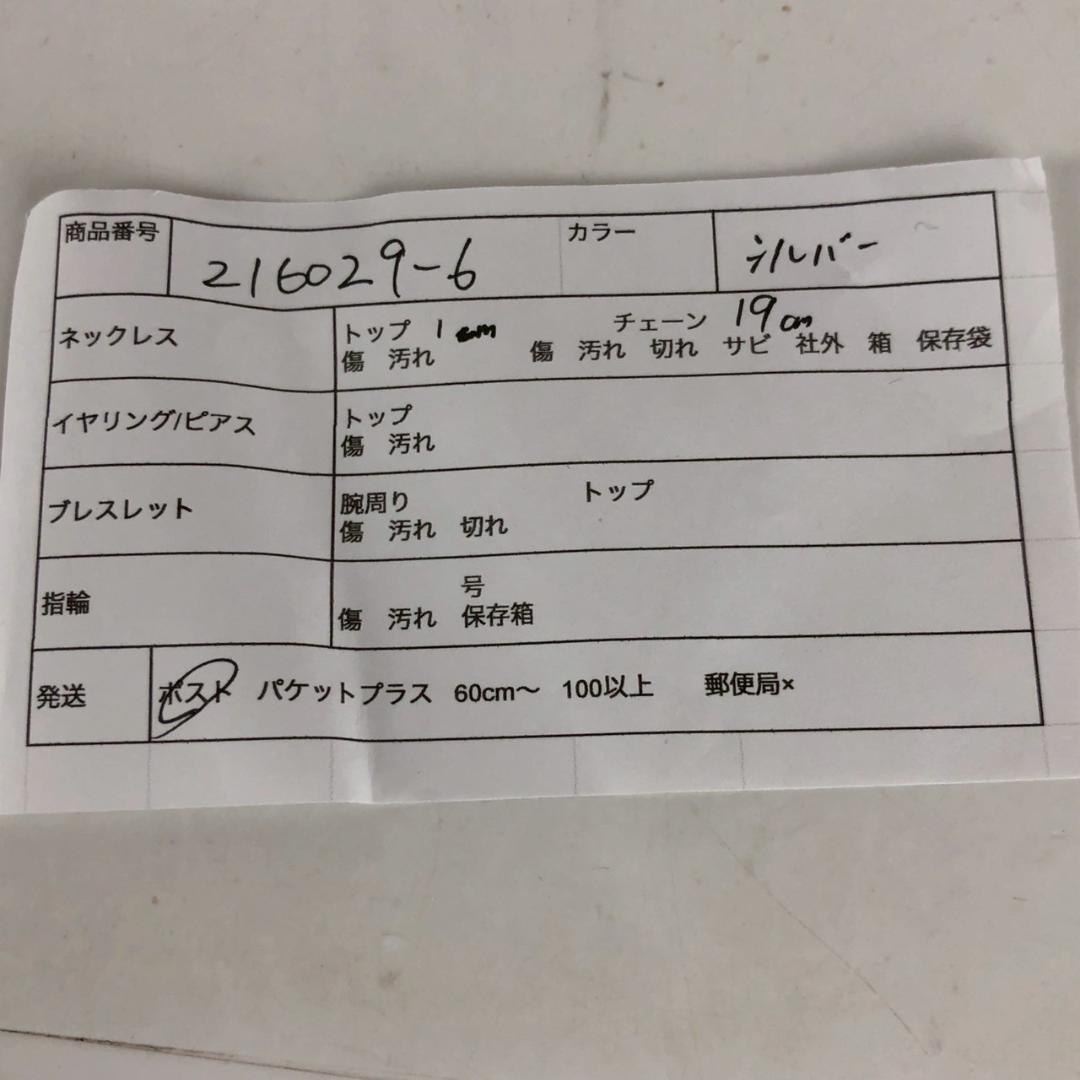 商品番号 216029-6 カラー シルバー
ネックレス トップ 1cm チェーン 19cm
傷 汚れ 傷 汚れ 切れ サビ 社外 箱 保存袋
イヤリング/ピアス トップ
傷 汚れ
ブレスレット 腕周り トップ
傷 汚れ 切れ
指輪 号
傷 汚れ 保存箱
発送 ポスト パケットプラス 60cm〜 100以上 郵便局×